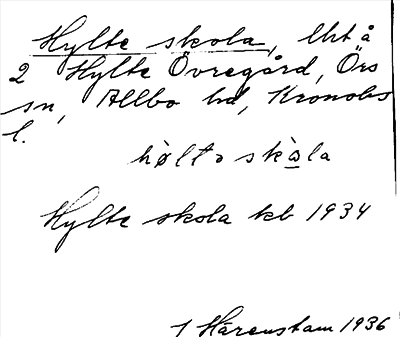 Hylte skola, lht å
2 Hylte Övregård, Örs
sn, Allbo hd, Kronobs
l.
hø̀lt ə skɑ̀la
Hylte skola kb 1934
J Hårenstam 1936